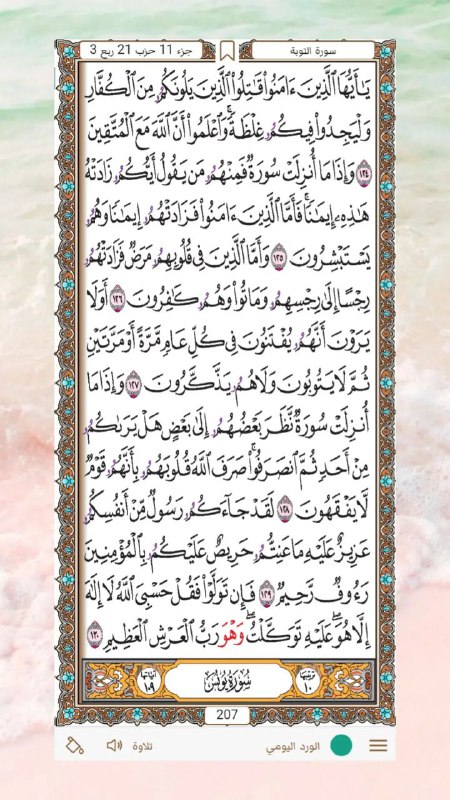 سورة التوبة
جزء 11 حزب 21 ربع 3
يَٰٓأَيُّهَا ٱلَّذِينَ ءَامَنُوا۟ قَٰتِلُوا۟ ٱلَّذِينَ يَلُونَكُمُۥ مِنَ ٱلْكُفَّارِ
وَلْيَجِدُوا۟ فِيكُمُۥ غِلْظَةًۚ وَٱعْلَمُوٓا۟ أَنَّ ٱللَّهَ مَعَ ٱلْمُتَّقِينَ
١٢٤ وَإِذَا مَآ أُنزِلَتْ سُورَةٌ فَمِنْهُمُۥ مَن يَقُولُ أَيُّكُمُۥ زَادَتْهُ
هَٰذِهِۦٓ إِيمَٰنًاۚ فَأَمَّا ٱلَّذِينَ ءَامَنُوا۟ فَزَادَتْهُمُۥ إِيمَٰنًا وَهُمُۥ
يَسْتَبْشِرُونَ ١٢٥ وَأَمَّا ٱلَّذِينَ فِى قُلُوبِهِمُۥ مَرَضٌ فَزَادَتْهُمُۥ
رِجْسًا إِلَىٰ رِجْسِهِمُۥ وَمَاتُوا۟ وَهُمُۥ كَٰفِرُونَ ١٢٦ أَوَلَا
يَرَوْنَ أَنَّهُمُۥ يُفْتَنُونَ فِى كُلِّ عَامٍ مَّرَّةً أَوْ مَرَّتَيْنِ
ثُمَّ لَا يَتُوبُونَ وَلَا هُمُۥ يَذَّكَّرُونَ ١٢٧ وَإِذَا مَآ
أُنزِلَتْ سُورَةٌ نَّظَرَ بَعْضُهُمُۥٓ إِلَىٰ بَعْضٍ هَلْ يَرَىٰكُمُۥ
مِّنْ أَحَدٍ ثُمَّ ٱنصَرَفُوا۟ۚ صَرَفَ ٱللَّهُ قُلُوبَهُمُۥ بِأَنَّهُمُۥ قَوْمٌ
لَّا يَفْقَهُونَ ١٢٨ لَقَدْ جَآءَكُمُۥ رَسُولٌ مِّنْ أَنفُسِكُمُۥ
عَزِيزٌ عَلَيْهِ مَا عَنِتُّمُۥ حَرِيصٌ عَلَيْكُمُۥ بِٱلْمُؤْمِنِينَ
رَءُوفٌ رَّحِيمٌ ١٢٩ فَإِن تَوَلَّوْا۟ فَقُلْ حَسْبِىَ ٱللَّهُ لَآ إِلَٰهَ
إِلَّا هُوَۖ عَلَيْهِ تَوَكَّلْتُۖ وَهْوَ رَبُّ ٱلْعَرْشِ ٱلْعَظِيمِ ١٣٠
ترتيبها ١٠
سُورَةُ يُونُسَ
آياتها ١٠٩
207
الورد اليومي
تلاوة